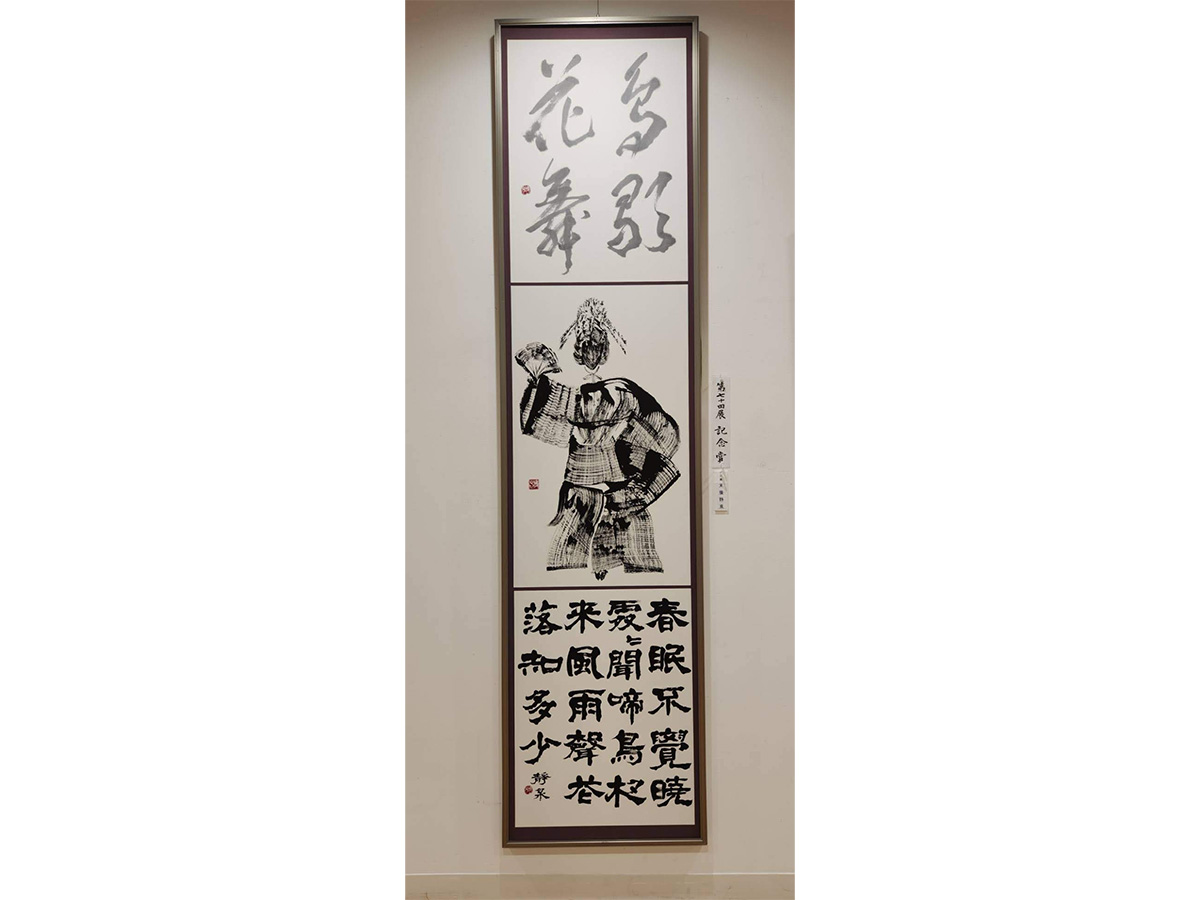 鳥歌
花舞
春眠不覺曉
處〻聞啼鳥夜
来風雨聲花
落知多少
靜泉
第七十四展 記念賞